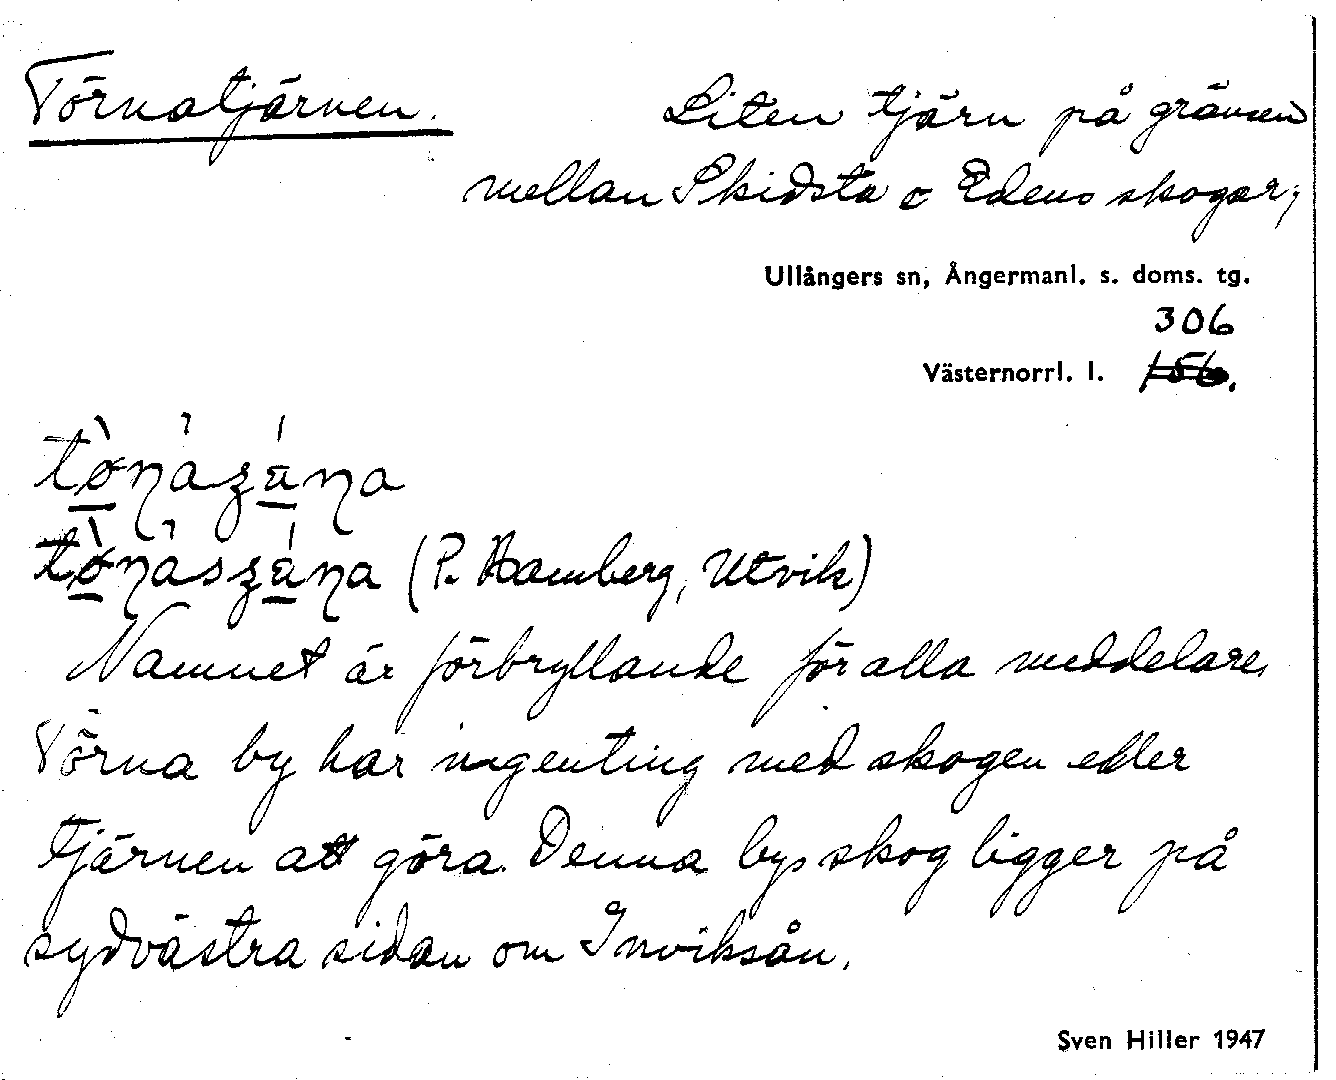 Törnatjärnen. Liten tjärn på gränsen
mellan Skidsta o Edens skogar;
Ullångers sn, Ångermanl. s. doms. tg.
306
Västernorrl. l. 156.
(P. Hamberg, Utvik)
Namnet är förbryllande för alla meddelare,
Törna by har ingenting med skogen eller
tjärnen att göra. Denna bys skog ligger på
sydvästra sidan om Inviksån.
Sven Hiller 1947